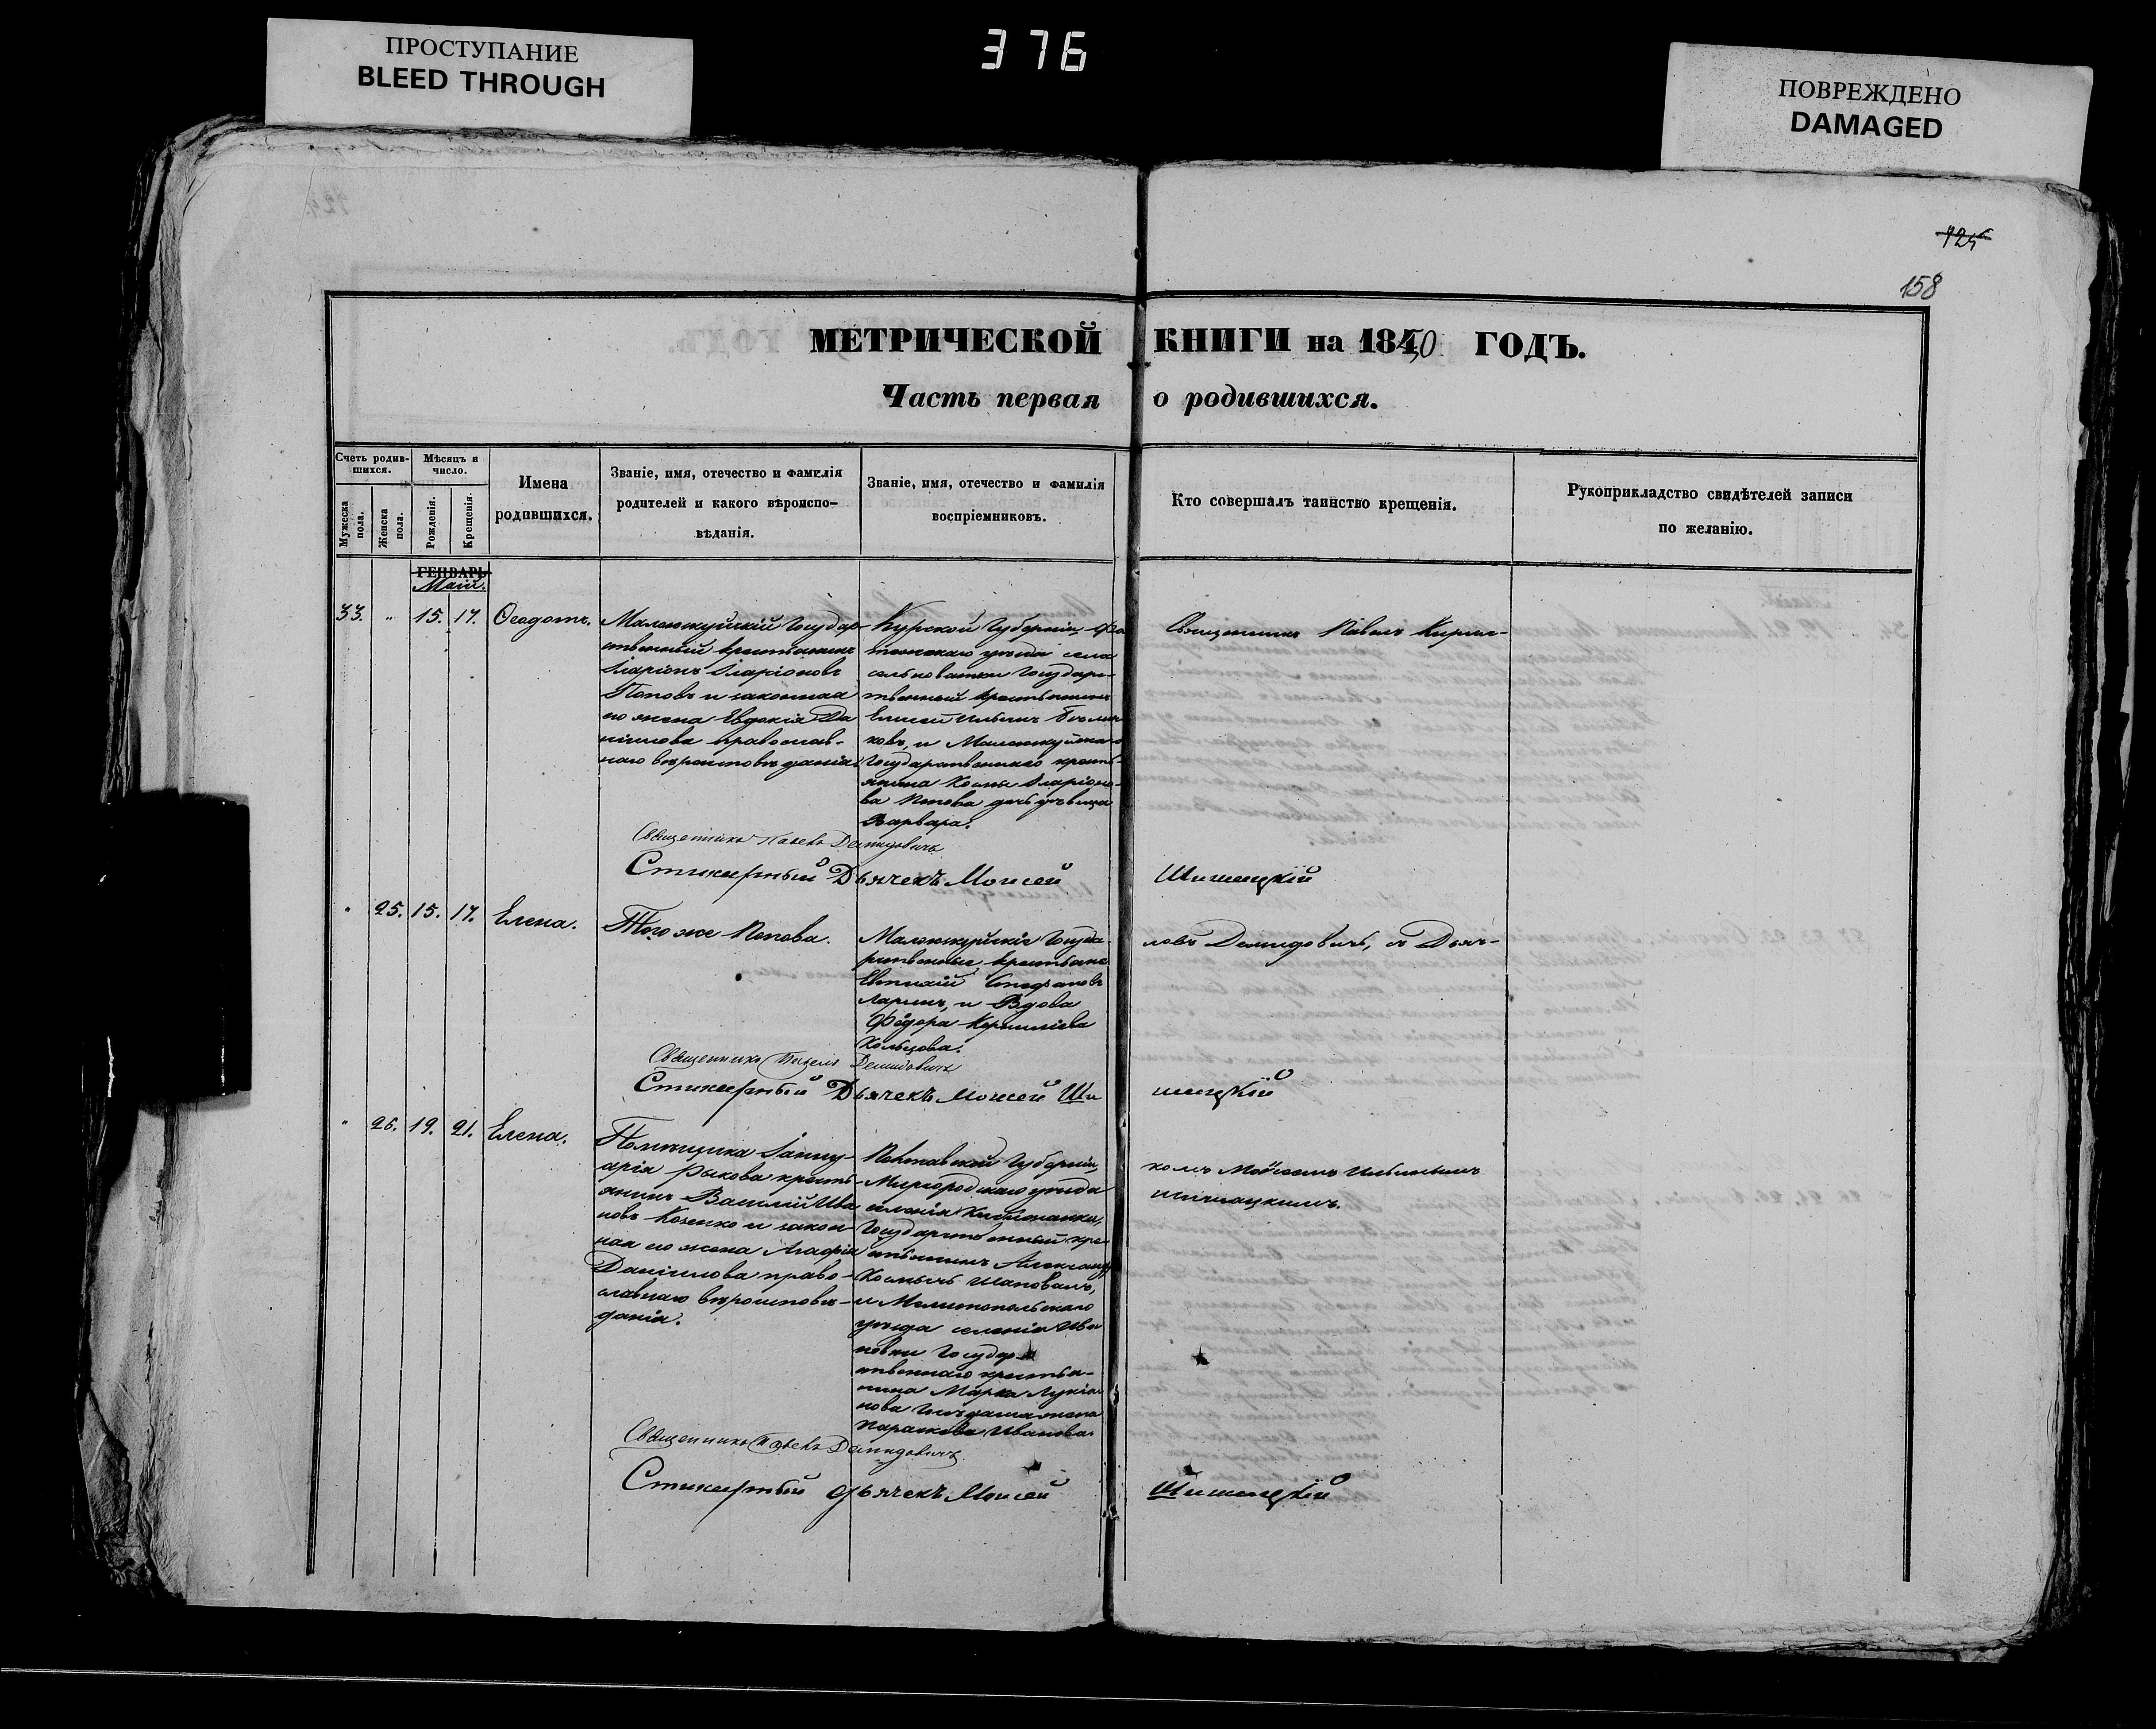 ПРОСТУПАНИЕ
BLEED THROUGH
376
ПОВРЕЖДЕНО
DAMAGED
125
158
МЕТРИЧЕСКОЙ КНИГИ на 1850 ГОДЪ.
Часть первая о родившихся.
Счетъ родив-
шихся.
Мѣсяцъ и
число.
Мужеска
пола.
Женска
пола.
Рожденія.
Крещенія.
Имена
родившихся.
Званіе, имя, отечество и фамилія
родителей и какого вѣроиспо-
вѣданія.
Званіе, имя, отечество и фамилія
воспріемниковъ.
Кто совершалъ таинство крещенія.
Рукоприкладство свидѣтелей записи
по желанію.
ГЕНВАРЬ
Маій.
33. " 15. 17. Ѳеодотъ.
Государ-
ственный крестьянинъ
Иларіонъ Иларіоновъ
Поповъ и законная
его жена Евдокія Да
ніилова православ-
наго вѣроисповѣданія.
Курской Губерніи Фа
тежскаго уѣзда села
Государ-
ственный крестьянинъ
Елисей Ильинъ
ковъ, и
Государственнаго кресть-
янина Космы Иларіоно-
ва Попова дочь дѣвица
Варвара.
Священникъ Павелъ Кирил-
Священникъ Павелъ Демидовичъ
Стихарный Дьячекъ Моисей Шишацкій
" 25. 15. 17. Елена.
Того же Попова.
Госуда-
рственные крестьяне
Евтихій Стефановъ
Ларинъ, и Вдова
Федора Корнилiева
Кольцова.
ловъ Демидовичъ, съ Дьяч-
Священникъ Павелъ Демидовичъ
Стихарный Дьячекъ Моисей Ши шацкій
" 26. 19. 21. Елена.
Помѣщика Іанну-
арія Рыкова кресть-
янинъ Василій Ива
новъ Козенко и закон-
ная его жена Агафія
Даніилова право-
славнаго вѣроисповѣ-
данія.
Полтавской Губерніи,
Миргородскаго уѣзда
селенія
Государственный кре-
стьянинъ Александръ
Космычъ Шаповалъ,
и Мелитопольскаго
уѣзда селенія Ива
новки Государ-
ственнаго крестья-
нина Марка Лукіа-
нова жена
Параскева Иванова.
комъ Моисеемъ Ильинымъ
Шишацкимъ.
Священникъ Павелъ Демидовичъ
Стихарный Дьячекъ Моисей Шишацкій